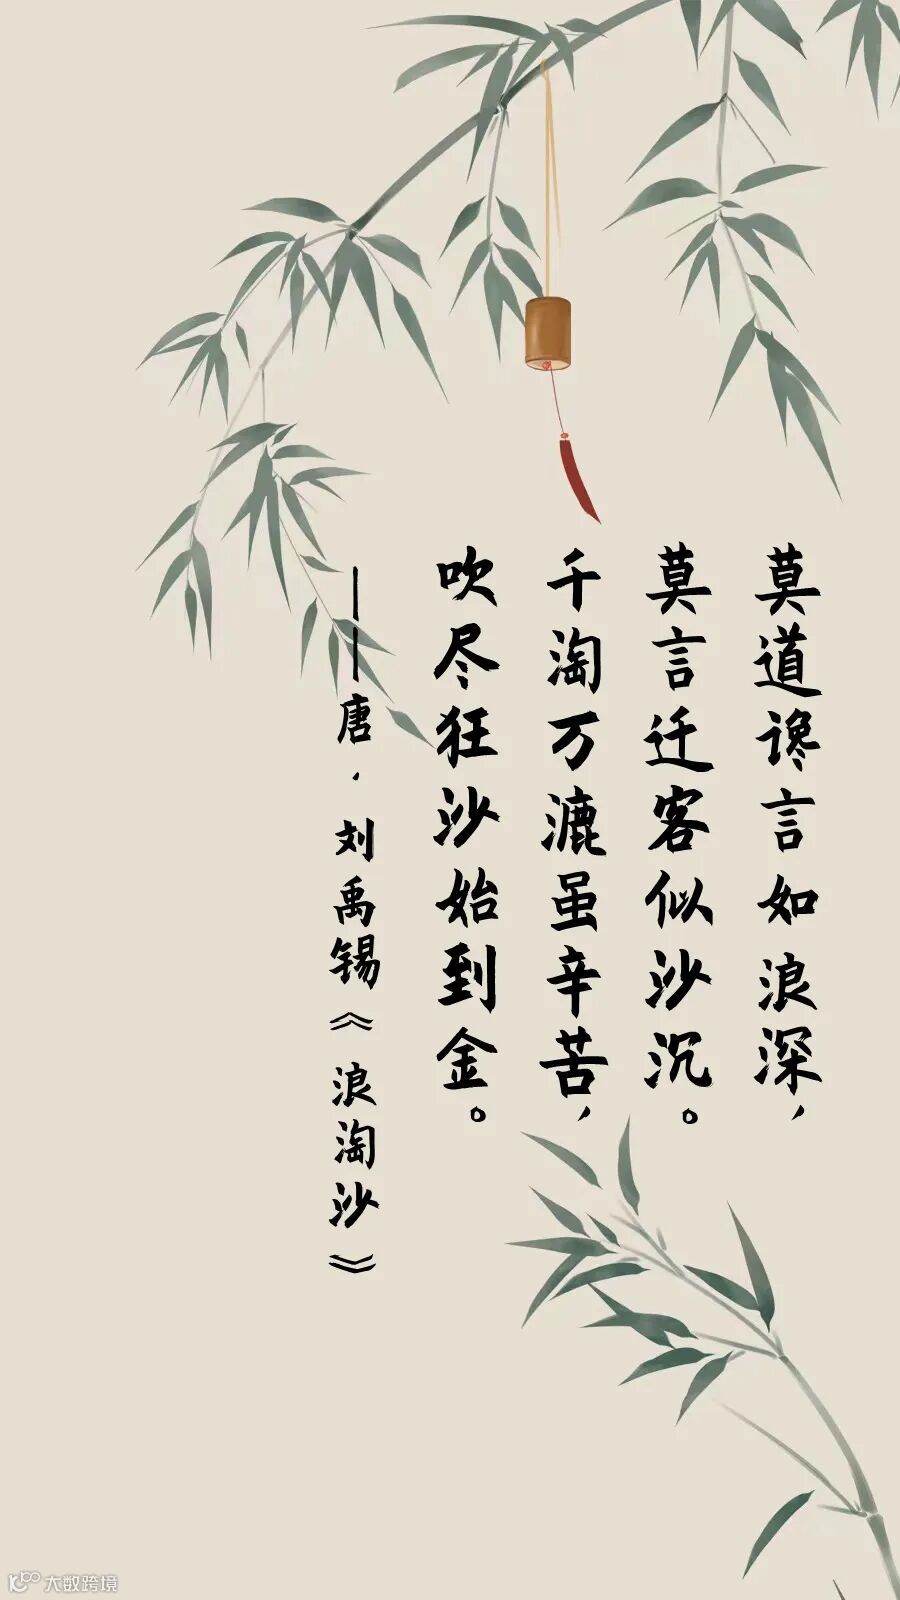 莫道谗言如浪深，
莫言迁客似沙沉。
千淘万漉虽辛苦，
吹尽狂沙始到金。
——唐．刘禹锡《浪淘沙》
大数跨境